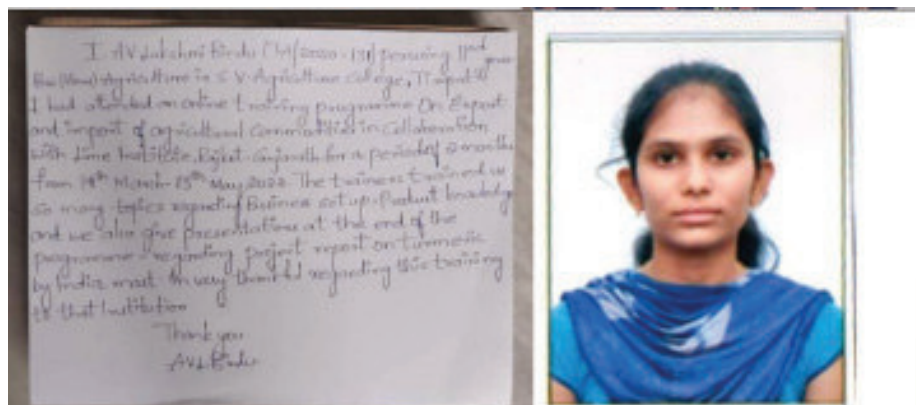 I. AV. Lakshmi Bindu (TA/2020-131) persuing IInd year
Agriculture in S.V. Agriculture College, Tirupati
I had attended an online training programme On Export
and import of agricultural Commodities in Collaboration
with Lime Institute, Rajkot-Gujarath for a period of 2 months
from 14th March- 25th May 2022. The trainers trained us
so many topics regarding Business setup. Product knowledge
and we also give presentations at the end of the
programme regarding project report on turmeric
by India mart. very thankful regarding this training
to that Institution
Thank you
AV.L.Bindu